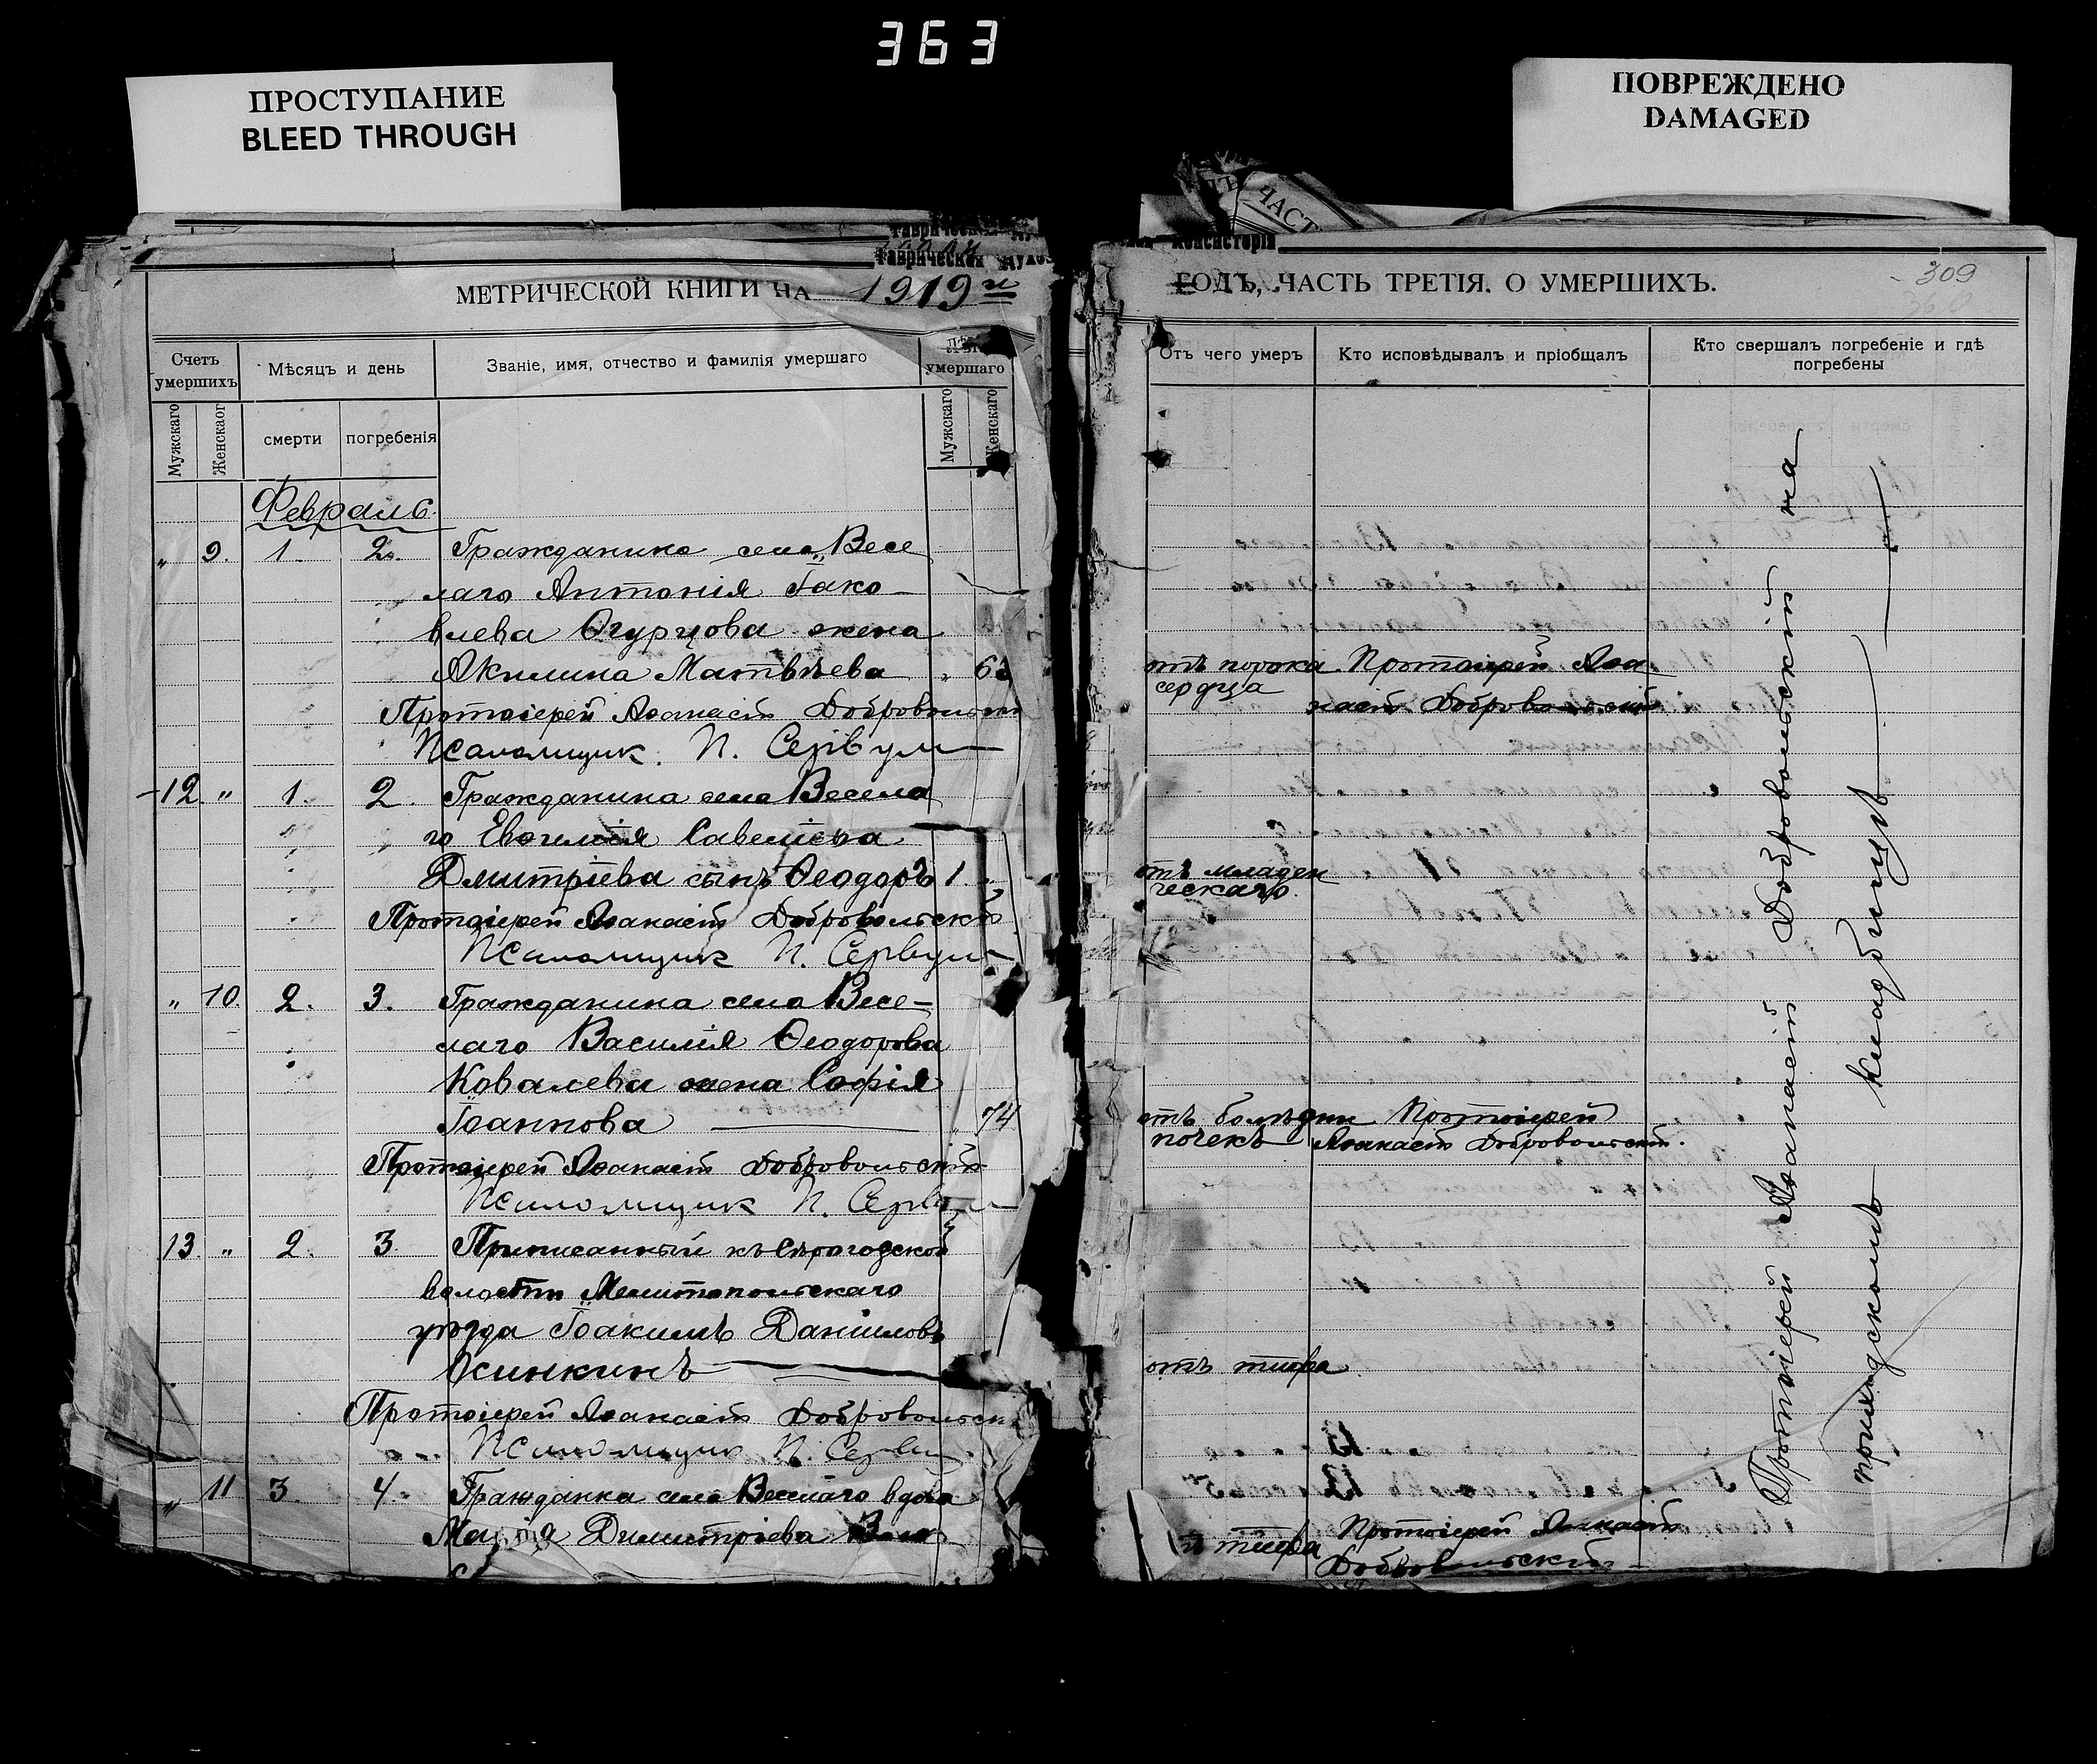 363
ПРОСТУПАНИЕ
BLEED THROUGH
ПОВРЕЖДЕНО
DAMAGED
ЧАСТ
Таврическая
Таврическая Духов
МЕТРИЧЕСКОЙ КНИГИ НА 1919 й
Счетъ умершихъ
Мужскаго
Женскаог
Мѣсяцъ и день
смерти
погребенія
Званіе, имя, отчество и фамилія умершаго
Лѣта умершаго
Мужскаго
Женскаго
Февраль
" 9. 1. 2. Гражданина села Весе
лаго Антонія Іако
влева Огурцова жена
Акилина Матвѣева "
Протоіерей Аѳанасій Добровольскій
Псаломщик П.
12. " 1. 2. Гражданина села Весела
го Савелієва
Дмитріева сынъ Ѳеодоръ 1.
Протоіерей Аѳанасій Добровольскій
Псаломщик П.
" 10. 2. 3. Гражданина села Весе-
лаго Василія Ѳеодорова
Ковалева жена Софія
Іоаннова " 74
Протоіерей Аѳанасій Добровольскій
Псаломщик П.
13. " 2. 3. Приписанный къ Сѣрогозской
волости Мелитопольскаго
уѣзда Іоакимъ Даніиловъ
Осинкинъ
Протоіерей Аѳанасій Добровольск
Псаломщик П.
" 11 3. 4. Гражданка села Веселаго вдова
Марія Димитріева
Консисторія
ГОДЪ, ЧАСТЬ ТРЕТІЯ. О УМЕРШИХЪ.
309
Отъ чего умеръ
Кто исповѣдывалъ и пріобщалъ
Кто свершалъ погребеніе и гдѣ погребены
отъ порока Протоіерей Аѳа
сердца насій Добровольскій
отъ младен
ческаго.
отъ болѣзни Протоіерей
почекъ Аѳанасій Добровольскій.
отъ тифа
тифа Протоіерей Аѳанасій
Добровольскій
Протоіерей Аѳанасій Добровольскій на
приходскомъ кладбищѣ